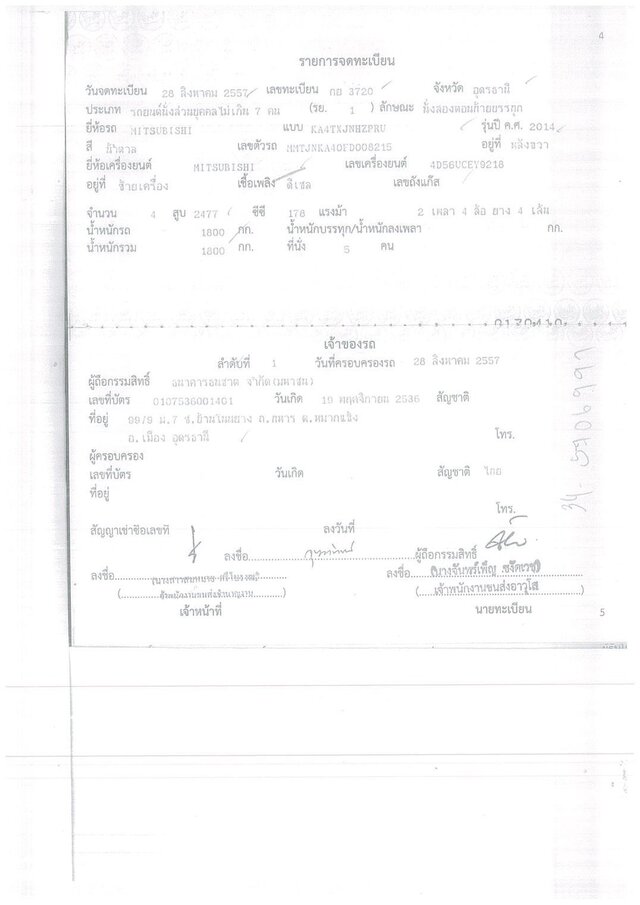 4
รายการจดทะเบียน
วันจดทะเบียน 28 สิงหาคม 2557 เลขทะเบียน กย 3720 จังหวัด อุดรธานี
ประเภท รถยนต์นั่งส่วนบุคคลไม่เกิน 7 คน (รย. 1 ) ลักษณะ นั่งสองตอนท้ายบรรทุก
ยี่ห้อรถ MITSUBISHI แบบ KA4TXJNHZPRU รุ่นปี ค.ศ. 2014
สี น้ำตาล เลขตัวรถ MMTJNKA40FD008215 อยู่ที่ หลังขวา
ยี่ห้อเครื่องยนต์ MITSUBISHI เลขเครื่องยนต์ 4D56UCEY9218
อยู่ที่ ซ้ายเครื่อง เชื้อเพลิง ดีเซล เลขถังแก๊ส
จำนวน 4 สูบ 2477 ซีซี 178 แรงม้า 2 เพลา 4 ล้อ ยาง 4 เส้น
น้ำหนักรถ 1800 กก. น้ำหนักบรรทุก/น้ำหนักลงเพลา กก.
น้ำหนักรวม 1800 กก. ที่นั่ง 5 คน
เจ้าของรถ
ลำดับที่ 1 วันที่ครอบครองรถ 28 สิงหาคม 2557
ผู้ถือกรรมสิทธิ์ ธนาคารธนชาต จำกัด(มหาชน)
เลขที่บัตร 0107536001401 วันเกิด 19 พฤศจิกายน 2536 สัญชาติ
ที่อยู่ 99/9 ม.7 ซ.บ้านโนนยาง ถ.ทหาร ต.หมากแข้ง
อ.เมือง อุดรธานี โทร.
ผู้ครอบครอง
เลขที่บัตร วันเกิด สัญชาติ ไทย
ที่อยู่
โทร.
34. 5906997
สัญญาเช่าซื้อเลขที่ ลงวันที่
ลงชื่อ ผู้ถือกรรมสิทธิ์
ลงชื่อ ลงชื่อ (นางจันทร์เพ็ญ
( ) ( เจ้าพนักงานขนส่งอาวุโส )
เจ้าหน้าที่ นายทะเบียน
5